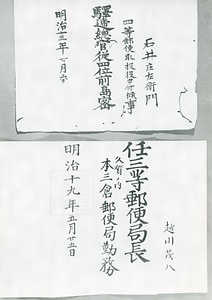 石井庄左衛門
四等郵便取扱役申付候事
驛逓總官従四位前島密
明治十三年七月六
越川茂八
任三等郵便局長
久賀ノ内
本三倉郵便局勤務
明治十九年五月廿五日